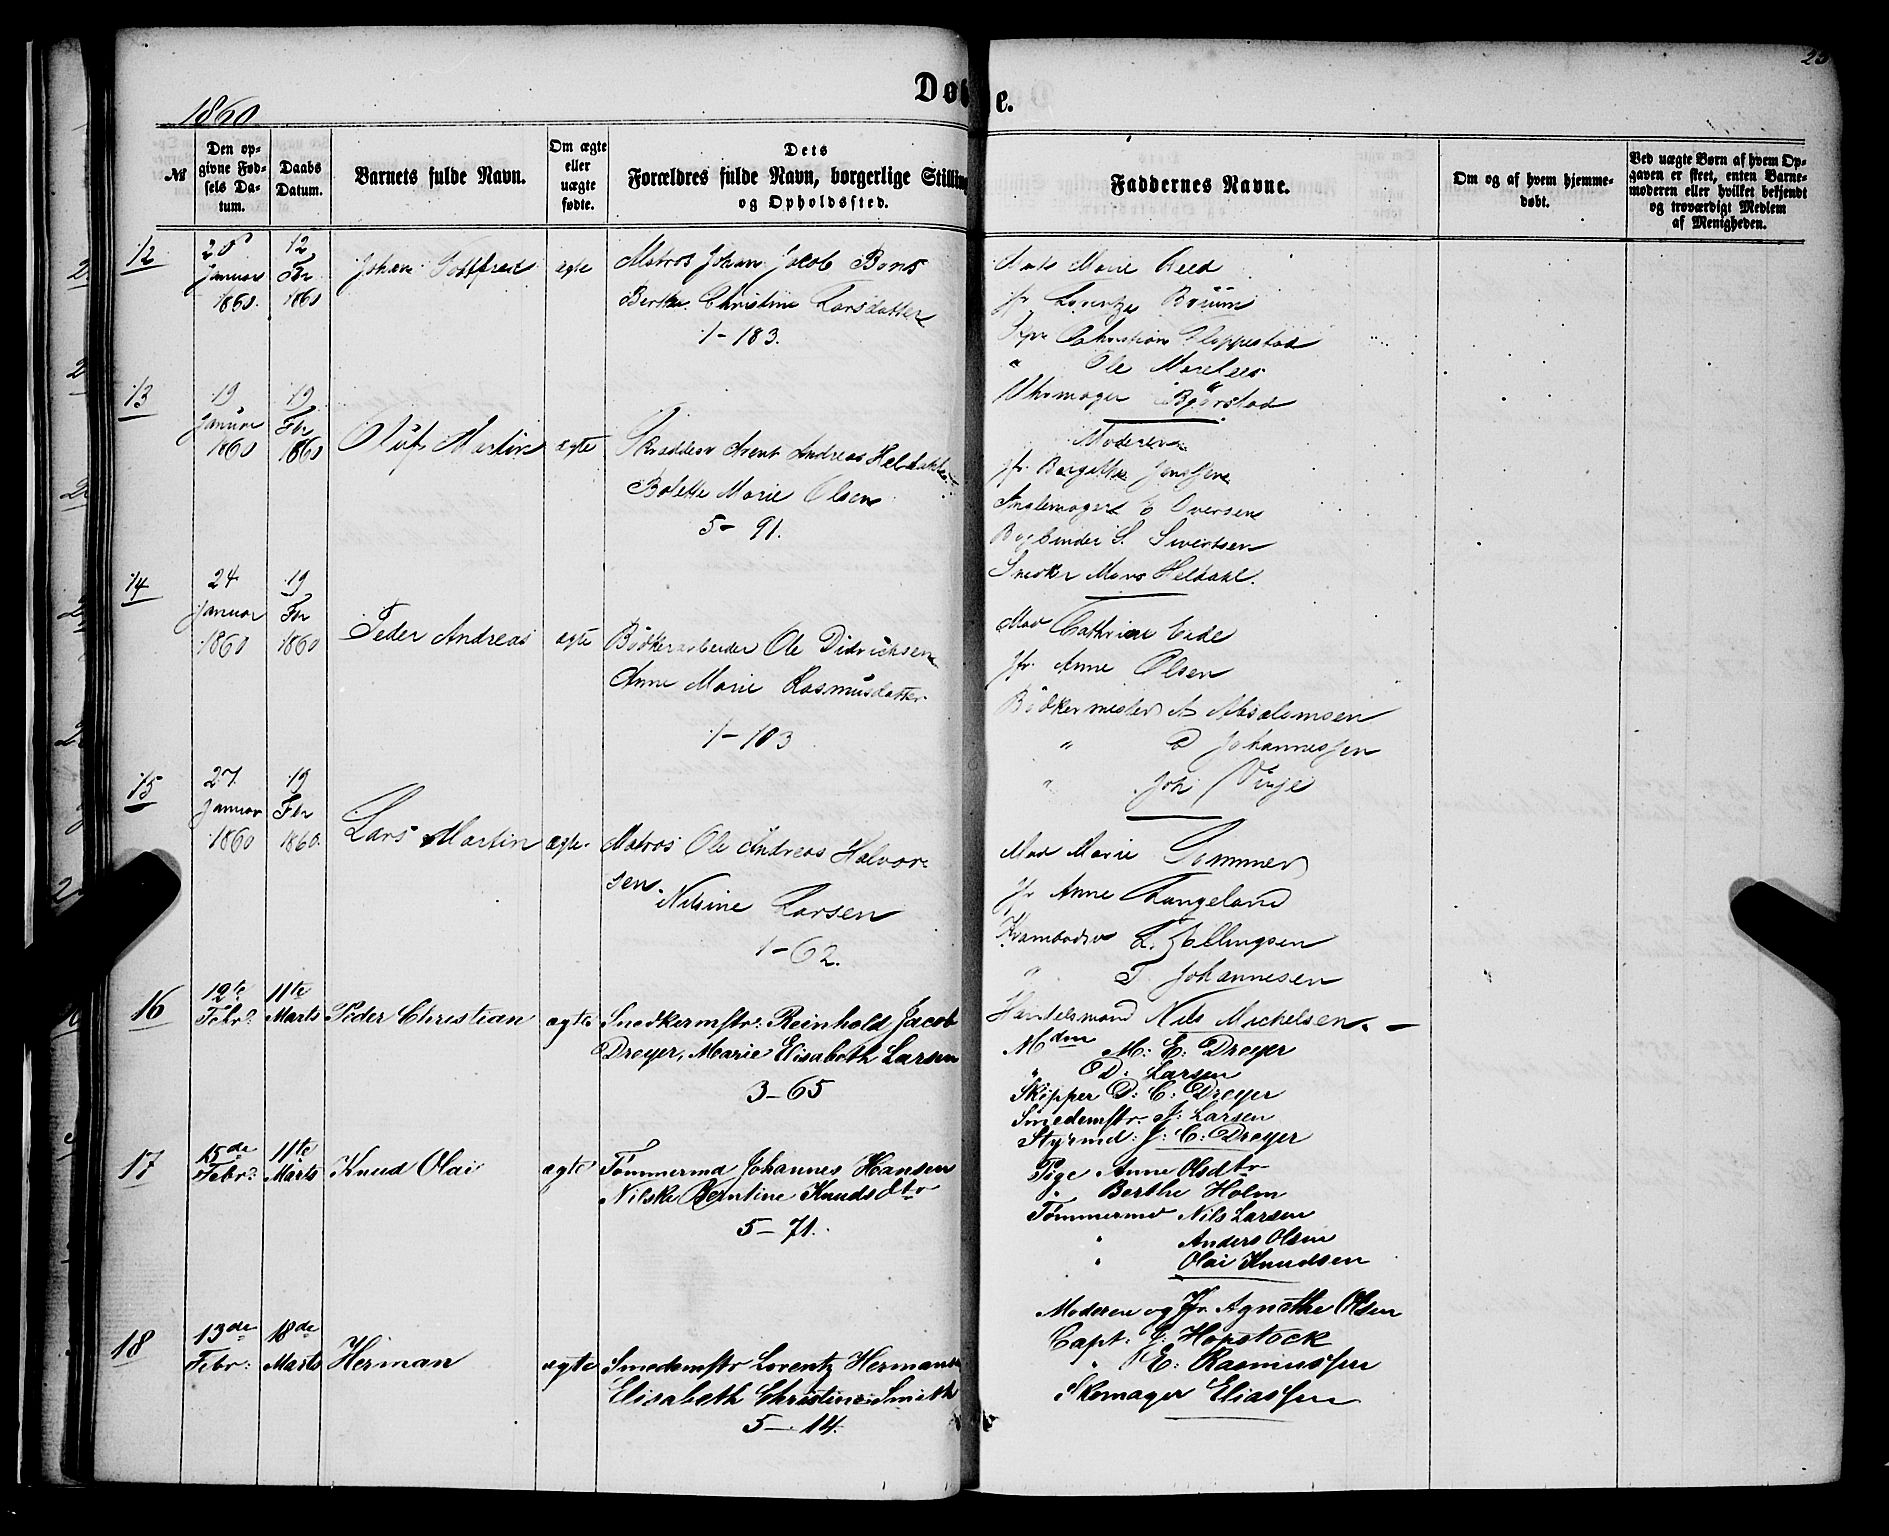 Døbte.
23
1860
№
Den opgivne Fødsels Datum.
Daabs Datum.
Barnets fulde Navn.
Om ægte eller uægte fødte.
Dets Forældres fulde Navn, borgerlige Stilling og Opholdssted.
Faddernes Navne.
Om og af hvem hjemmedøbt.
Ved uægte Børn af hvem Opgaven er skeet, enten Barnemoderen eller hvilket bekjendt og troværdigt Medlem af Menigheden.
12
Januar 1860.
12 Fbr 1860
Johan
ægte
Matros Johan Jacob
Berthe Christine Larsdatter
1-183.
Marie
jfr Lorentze
Christian
" Ole
Uhrmager
13
19 Januar 1860
19 Fbr 1860
Oluf Martin
ægte
Skrædder Arent Andreas Heldahl
Bolette Marie Olsen
5-91.
Moderen
jfr
E Iversen
Bogbinder S. Sivertsen
Snedker Mons Heldahl.
14
24 Januar 1860
19 Fbr 1860
Peder Andreas
ægte
Bødkerarbeider Ole Didricksen
Anne Marie Rasmusdatter
1-103
Mad Cathrine Eide
jfr. Anne Olsen
Bødkermester A Absalomsen
" D Johannessen
" Joh
15
27 Januar 1860
19 Fbr 1860.
Lars Martin
ægte
Matros Ole Andreas Halvor-
sen.
Nilsine Larsen
1-62.
Mad Marie Sommer
jfr Anne Langeland
L. Ellingsen
" T. Johannesen
Handelsmand Nils Mickelsen.
16
12te Febr:
11te Marts
Peder Christian
ægte
Snedkermstr: Reinhold Jacob
Dreyer, Marie Elisabeth Larsen
3-65
Mdm M: E: Dreyer
" D: Larsen
Skipper D: C: Dreyer
Smedemstr. J: Larsen
Styrmd: J: C: Dreyer
17
15de Febr:
11te Marts
Knud Olai
ægte
Tømmermd Johannes Hansen
Nilske Berntine Knudsdtr
5-71.
Pige Anne Olsdtr
" Berthe Holm
Tømmermd Nils Larsen
" Anders Olsen
" Olai Knudsen
18
13de Febr:
18de Marts
Herman
ægte
Smedemstr Lorentz Hermans
Elisabeth Christine Smith
5-14.
Moderen og Jfr. Agnethe Olsen
Capt: Hopstock
" E: Rasmussen
Skomager Eliassen